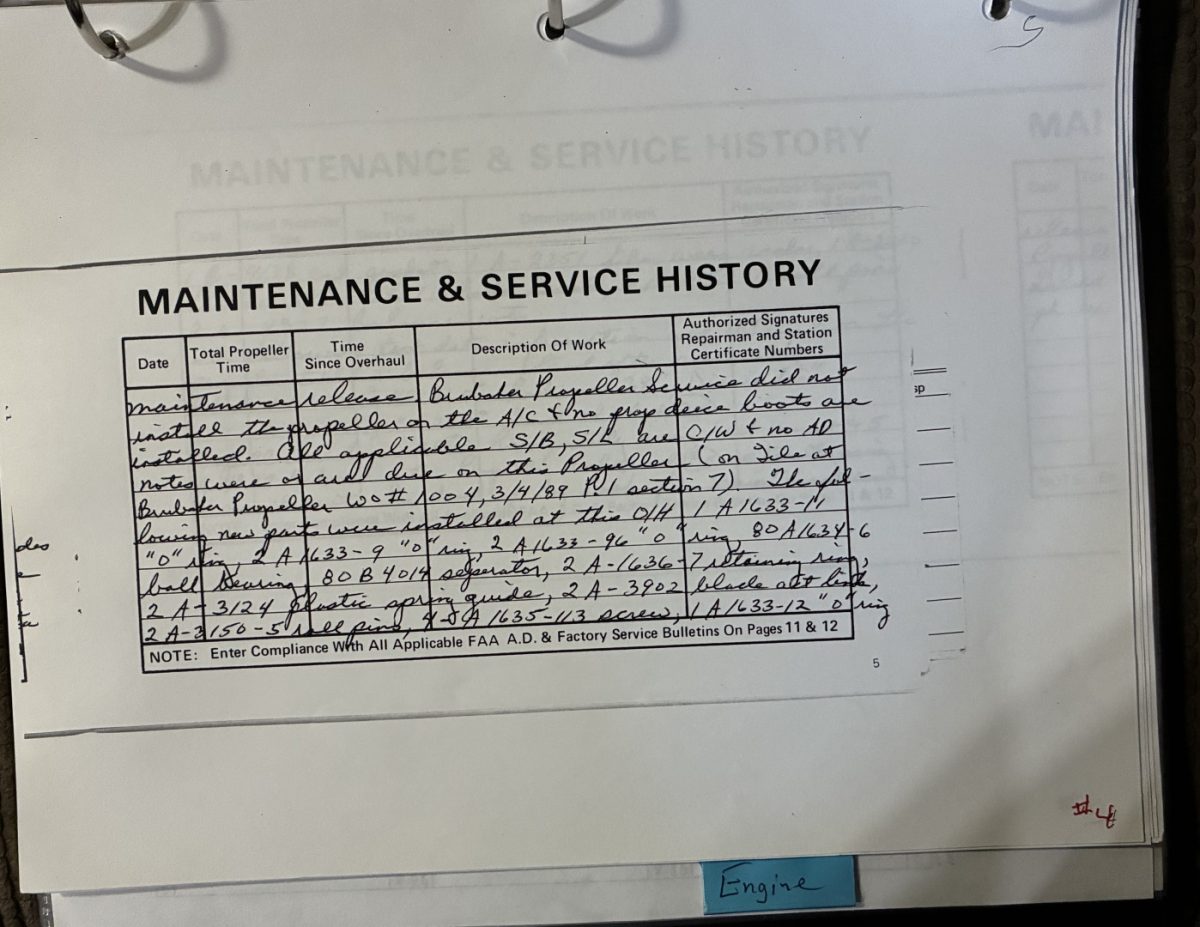 5
MAINTENANCE & SERVICE HISTORY
MAI
MAINTENANCE & SERVICE HISTORY
Date
Total Propeller Time
Time Since Overhaul
Description Of Work
Authorized Signatures Repairman and Station Certificate Numbers
maintenance release Brubaker Propeller Service did not
install the propeller on the A/C & no prop deice boots are
installed. All applicable S/B, S/L are C/W & no AD
notes were or are due on this Propeller (on File at
Brubaker Propeller WO# 1004, 3/4/89 P.1 section 7) The fol-
lowing new parts were installed at this O/H 1 A1633-11
"O" ring, 2 A1633-9 "O" ring, 2 A1633-96 "O" ring, 80 A1634-6
ball bearing, 80 B4014 separator, 2 A-1636-7 retaining ring,
2 A-3124 plastic spring guide, 2 A-3902 blade act link,
2 A-3150-5 roll pins, A1635-113 screw, 1 A1633-12 "O" ring
NOTE: Enter Compliance With All Applicable FAA A.D. & Factory Service Bulletins On Pages 11 & 12
5
Engine